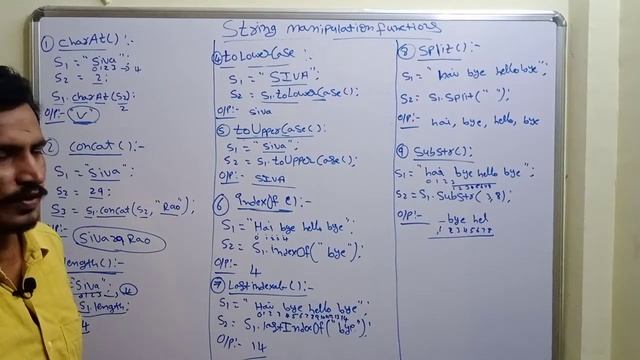 String manipulation functions
① charAt():-
S1 = "Siva";
0 1 2 3 → 4
S2 = 2;
S1.charAt(S2);
2
O/P:- "V"
② concat():-
S1 = "Siva";
S2 = 29;
S3 = S1.concat(S2, "Rao");
P:- Siva29Rao
length():-
= "Siva";
0 1 2 3 → 4
S1.length;
4
④ toLowerCase
S1 = "SIVA";
S2 = S1.toLowerCase();
O/P:- siva
⑤ toUpperCase():-
S1 = "siva";
S2 = S1.toUpperCase();
O/P:- SIVA
⑥ IndexOf():-
S1 = "Hai bye hello bye";
0 1 2 3 4
S2 = S1.IndexOf("bye");
O/P:-
4
⑦ LastIndexOf():-
S1 = "Hai bye hello bye";
0 1 2 3 4 5 6 7 8 9 10 11 12 13 14
S2 = S1.lastIndexOf("bye");
O/P:- 14
⑧ Split():-
S1 = "Hai bye hello bye";
S2 = S1.Split(" ");
O/P:- hai, bye, hello, bye
⑨ Substr():-
S1 = "hai bye hello bye";
0 1 2 3
S2 = S1.Substr(3,8);
O/P:- _bye hel
1 2 3 4 5 6 7 8